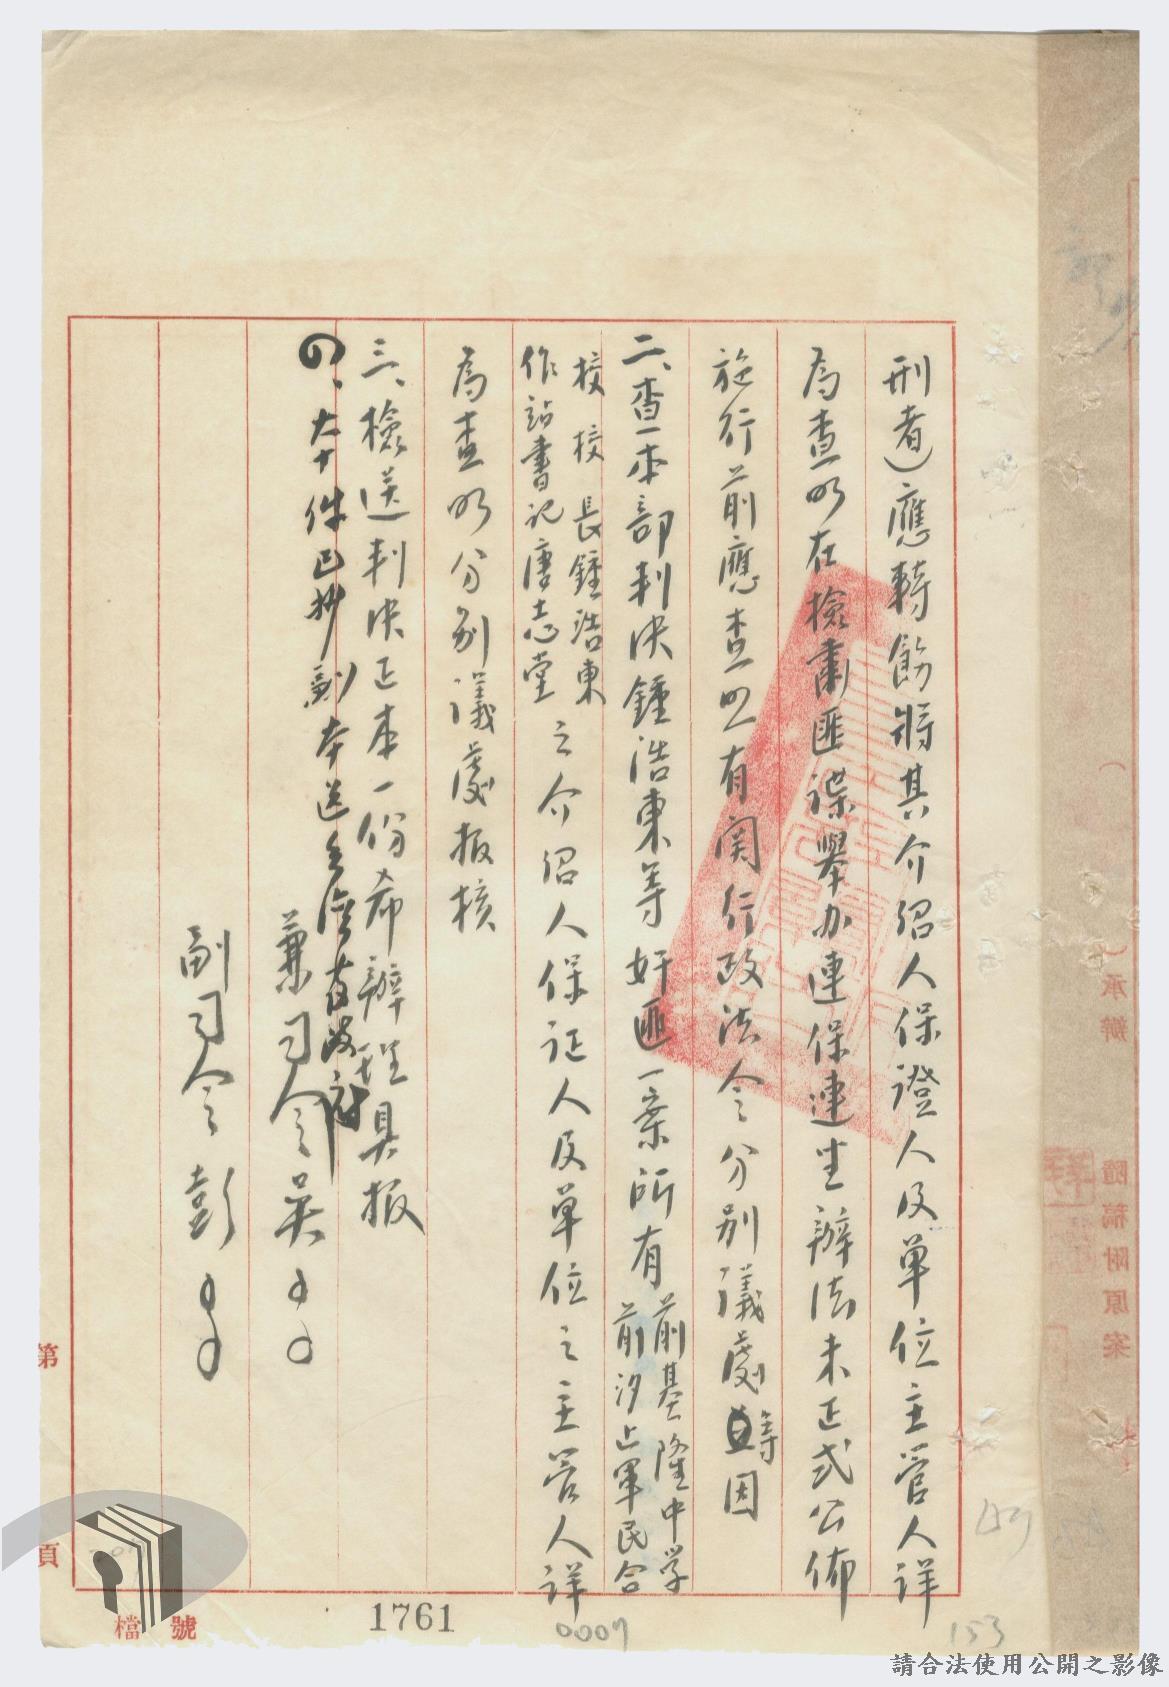 刑者）應轉飭將其介紹人保證人及單位主管人詳
為查明在檢肅匪諜舉办連保連坐辦法未正式公佈
施行前應查照有関行政法令分別議處等因
二、查本部判決鍾浩東等奸匪一案所有前基隆中学
前汐止軍民合
校校長鍾浩東
作站書記唐志堂
之介紹人保証人及單位之主管人詳
為查明分別議處报核
三、檢送判決正本一份希辦理具报
四、本件已抄副本送台灣省政府
兼司令吳
副司令彭
第
頁
檔號
1761
0007
153
承辦
隨稿附原案
請合法使用公開之影像